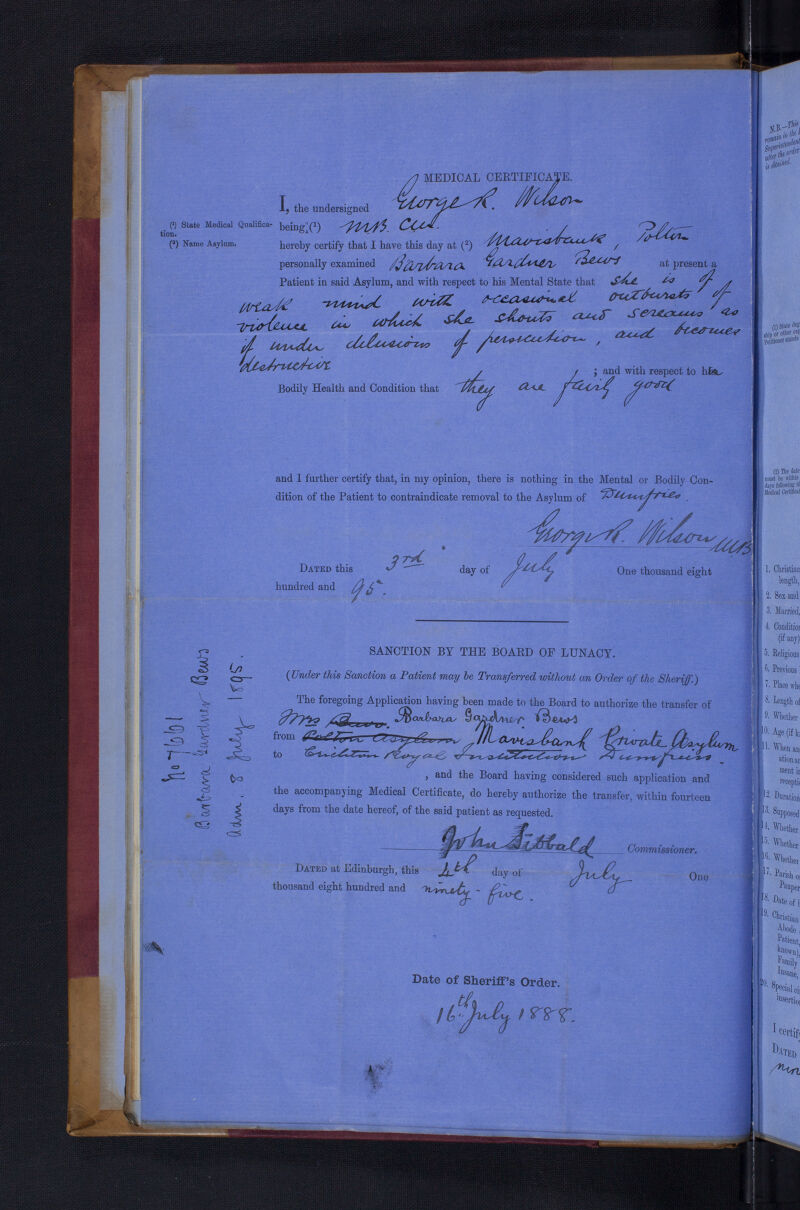 MEDICAL CERTIFICATE.
I, the undersigned George R. Wilson
(1) State Medical Qualifica-
tion.
being,(1) M.B. C.M.
(2) Name Asylum.
hereby certify that I have this day at (2) Mavisbank, Polton
personally examined Barbara Gardner Bews at present a
Patient in said Asylum, and with respect to his Mental State that she is of
weak mind with occasional outbursts of
violence in which she shouts and screams as
if under delusions of persecution, and becomes
destructive
; and with respect to her
Bodily Health and Condition that they are fairly good
and I further certify that, in my opinion, there is nothing in the Mental or Bodily Con-
dition of the Patient to contraindicate removal to the Asylum of Dumfries.
George R. Wilson MB
DATED this 3rd day of July One thousand eight
hundred and 95.
SANCTION BY THE BOARD OF LUNACY.
(Under this Sanction a Patient may be Transferred without an Order of the Sheriff.)
The foregoing Application having been made to the Board to authorize the transfer of
Mrs Bews. Barbara Gardner Bews
from Polton Asylum Mavisbank Private Asylum
to Crichton Royal Institution Dumfries.
, and the Board having considered such application and
the accompanying Medical Certificate, do hereby authorize the transfer, within fourteen
days from the date hereof, of the said patient as requested.
John Sibbald Commissioner.
DATED at Edinburgh, this 4th day of July One
thousand eight hundred and ninety-five.
Date of Sheriff's Order.
16th July 1888.
No 7661
Barbara Gardner Bews
adm. 8 July 1895.
N.B.—This
1. Christian
length,
2. Sex and
3. Married,
4. Condition
(if any)
5. Religious
6. Previous
7. Place whe
8. Length of
9. Whether
10. Age (if k
11. When and
ation an
ment i
recepti
12. Duration
13. Supposed
14. Whether
15. Whether
16. Whether
17. Parish o
Pauper
18. Date of
19. Christian
Abode
Patient,
known,
Family
Insane,
20. Special ci
insertion
I certif
DATED